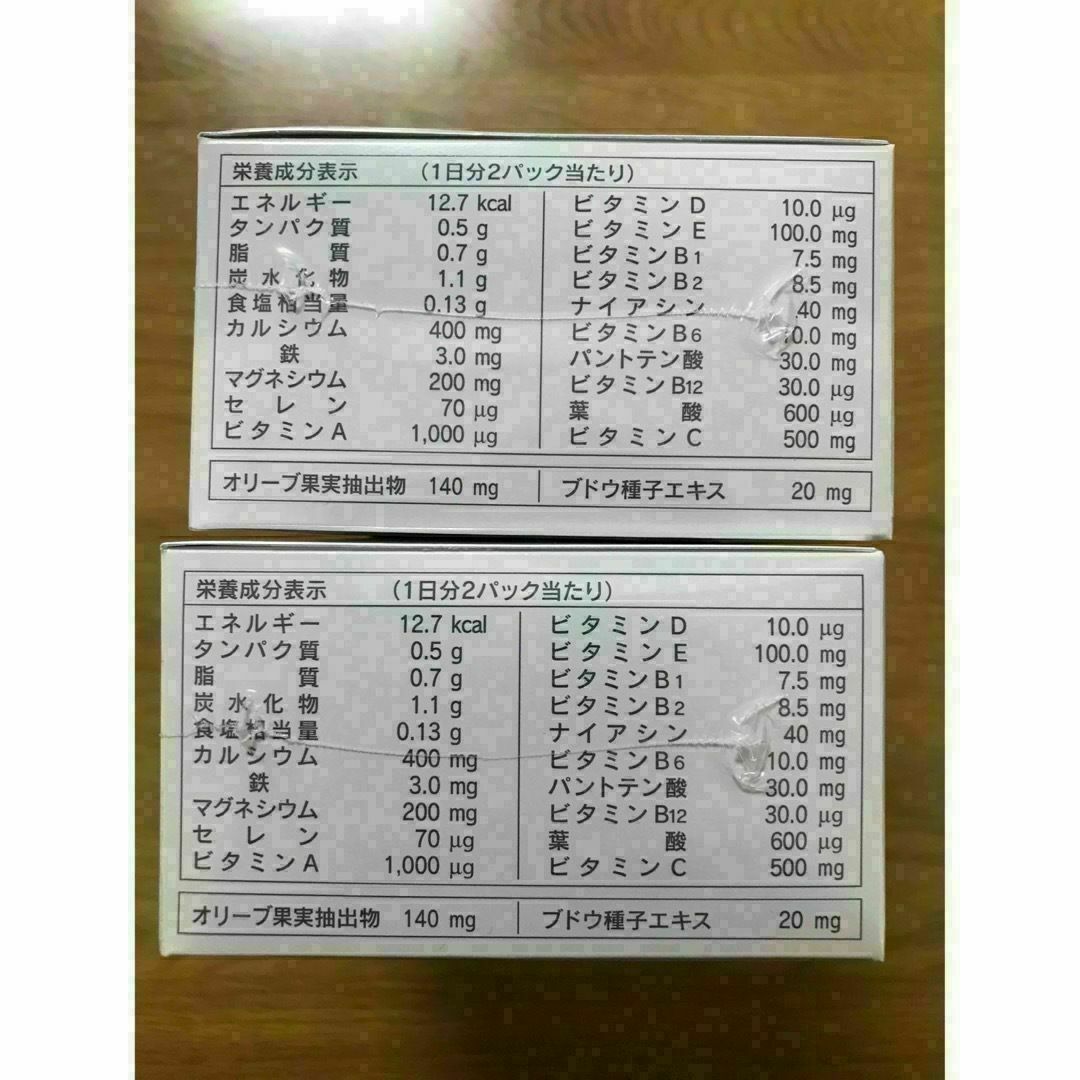 栄養成分表示 (1日分2パック当たり)
エネルギー 12.7 kcal
タンパク質 0.5 g
脂質 0.7 g
炭水化物 1.1 g
食塩相当量 0.13 g
カルシウム 400 mg
鉄 3.0 mg
マグネシウム 200 mg
セレン 70 μg
ビタミンA 1,000 μg
ビタミンD 10.0 μg
ビタミンE 100.0 mg
ビタミンB1 7.5 mg
ビタミンB2 8.5 mg
ナイアシン 40 mg
ビタミンB6 10.0 mg
パントテン酸 30.0 mg
ビタミンB12 30.0 μg
葉酸 600 μg
ビタミンC 500 mg
オリーブ果実抽出物 140 mg
ブドウ種子エキス 20 mg
栄養成分表示 (1日分2パック当たり)
エネルギー 12.7 kcal
タンパク質 0.5 g
脂質 0.7 g
炭水化物 1.1 g
食塩相当量 0.13 g
カルシウム 400 mg
鉄 3.0 mg
マグネシウム 200 mg
セレン 70 μg
ビタミンA 1,000 μg
ビタミンD 10.0 μg
ビタミンE 100.0 mg
ビタミンB1 7.5 mg
ビタミンB2 8.5 mg
ナイアシン 40 mg
ビタミンB6 10.0 mg
パントテン酸 30.0 mg
ビタミンB12 30.0 μg
葉酸 600 μg
ビタミンC 500 mg
オリーブ果実抽出物 140 mg
ブドウ種子エキス 20 mg